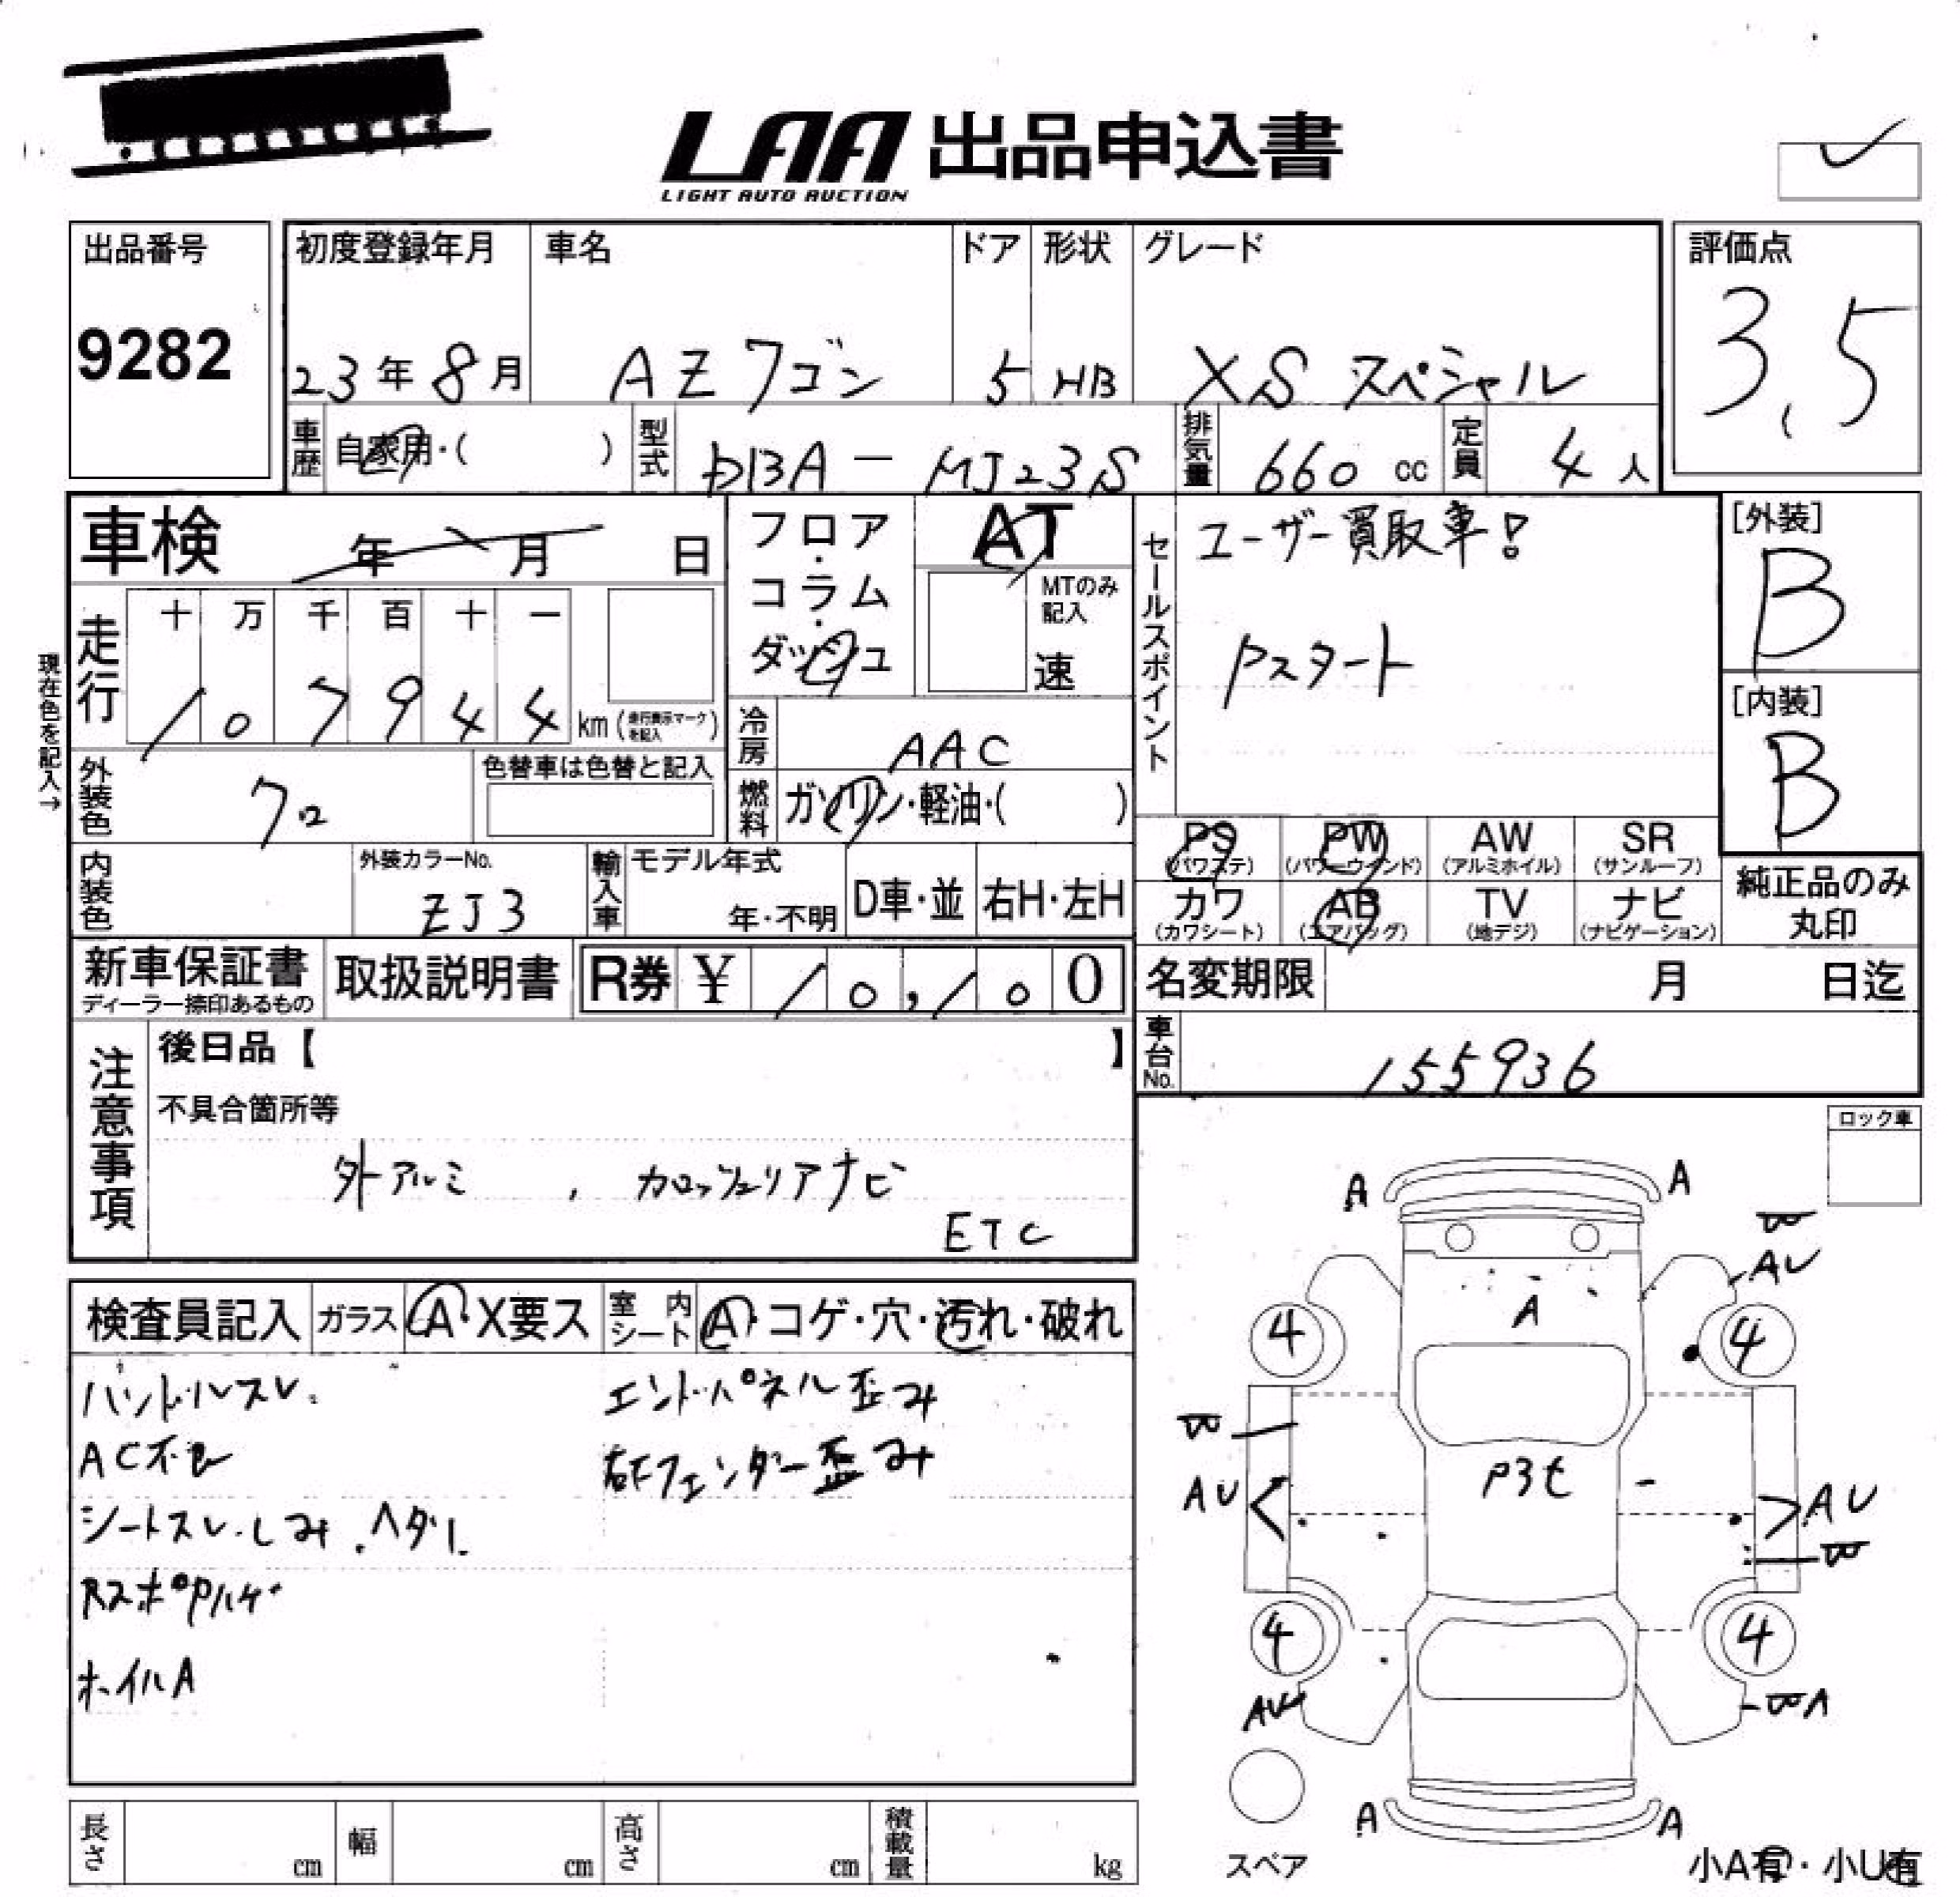 LAA 出品申込書
LIGHT AUTO AUCTION
出品番号
9282
初度登録年月
23年8月
車名
AZワゴン
ドア
5
形状
HB
グレード
XS スペシャル
評価点
3.5
車歴
自家用・( )
型式
DBA-MJ23S
排気量
660 cc
定員
4人
車検 年 月 日
フロア・コラム・ダッシュ
AT
MTのみ記入
速
セールスポイント
ユーザー買取車!
Pスタート
[外装]
B
[内装]
B
現在色を記入→
走行
十 万 千 百 十 一
1 0 7 9 4 4
km (走行表示マークを記入)
冷房
AAC
燃料
ガソリン・軽油・( )
外装色
クロ
色替車は色替と記入
内装色
外装カラーNo.
ZJ3
輸入車
モデル年式
年・不明
D車・並
右H・左H
PS
(パワステ)
PW
(パワーウインド)
AW
(アルミホイル)
SR
(サンルーフ)
カワ
(カワシート)
AB
(エアバッグ)
TV
(地デジ)
ナビ
(ナビゲーション)
純正品のみ
丸印
新車保証書
ディーラー捺印あるもの
取扱説明書
R券 ¥ 10,100
名変期限 月 日迄
車台No.
155936
注意事項
後日品【 】
不具合箇所等
外アルミ , カロッツェリアナビ
ETC
ロック車
検査員記入
ガラス
A・X要ス
室内シート
A・コゲ・穴・汚れ・破れ
ハンドルスレ.
AC不良
シートスレ.しみ.ヘタリ
RスポPハゲ
ホイルA
エンドパネル歪み
右Fフェンダー歪み
A A
AU
A
4 4
P3t
AU AU
4 4
AU
A
A A
スペア
小A有・小U有
長さ cm
幅 cm
高さ cm
積載量 kg